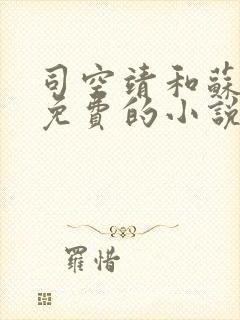 司空靖和蘇
免費的小說
羅惜